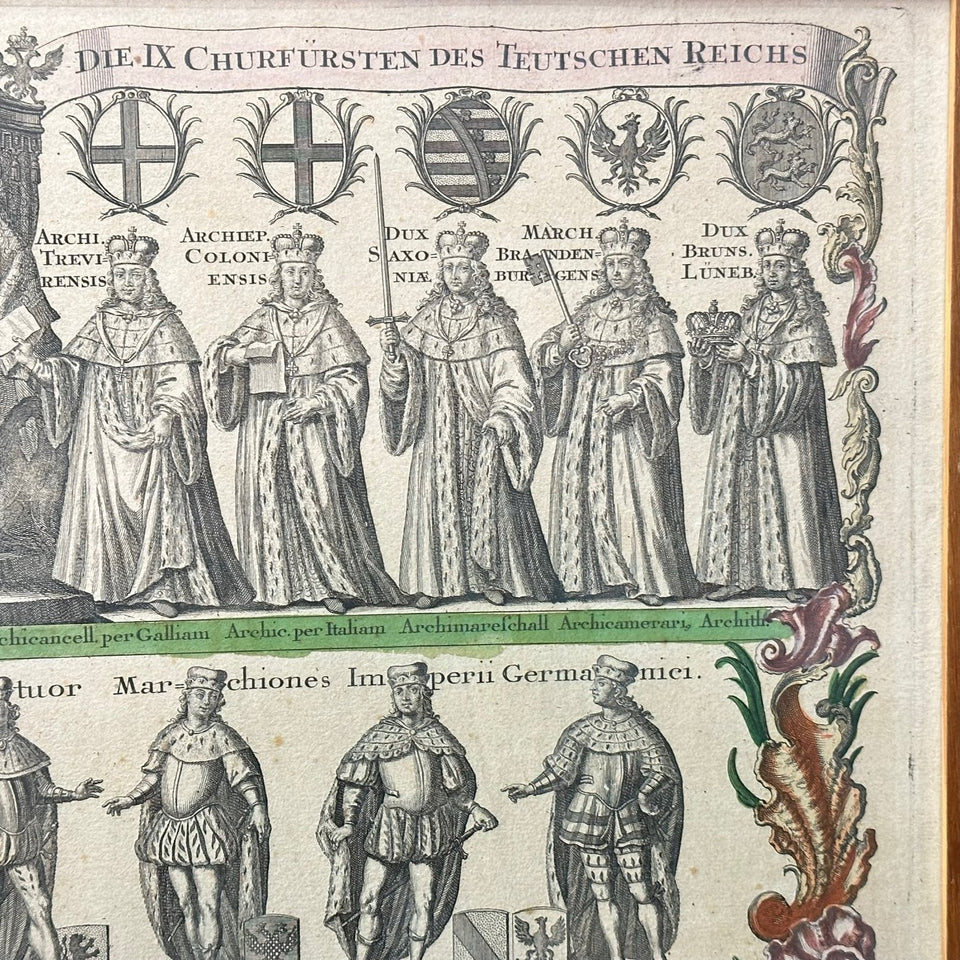 DIE IX CHURFÜRSTEN DES TEUTSCHEN REICHS
ARCHI.
TREVI-
RENSIS
ARCHIEP.
COLONI
ENSIS
DUX
SAXO-
NIÆ
MARCH.
BRANDEN=
BURGENS
DUX
BRUNS.
LÜNEB.
chicancell. per Galliam Archic. per Italiam Archimareſchall Archicamerari, Archith.
tuor Mar=chiones Imperii Germanici.